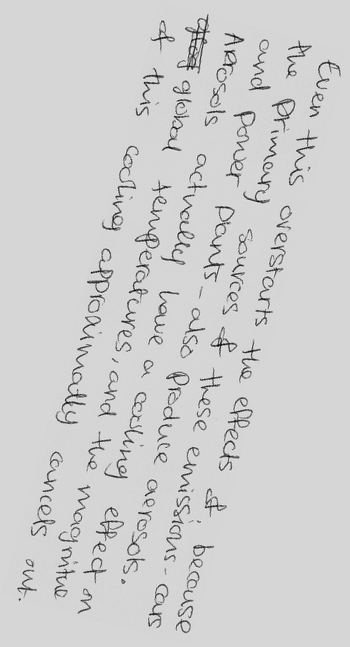 Even this overstarts the effects of; because
the primary sources of these emissions - cars
and power plants - also produce aerosols.
Aerosols actually have a cooling effect on
global temperatures, and the magnitue
of this cooling approximatly cancels out.